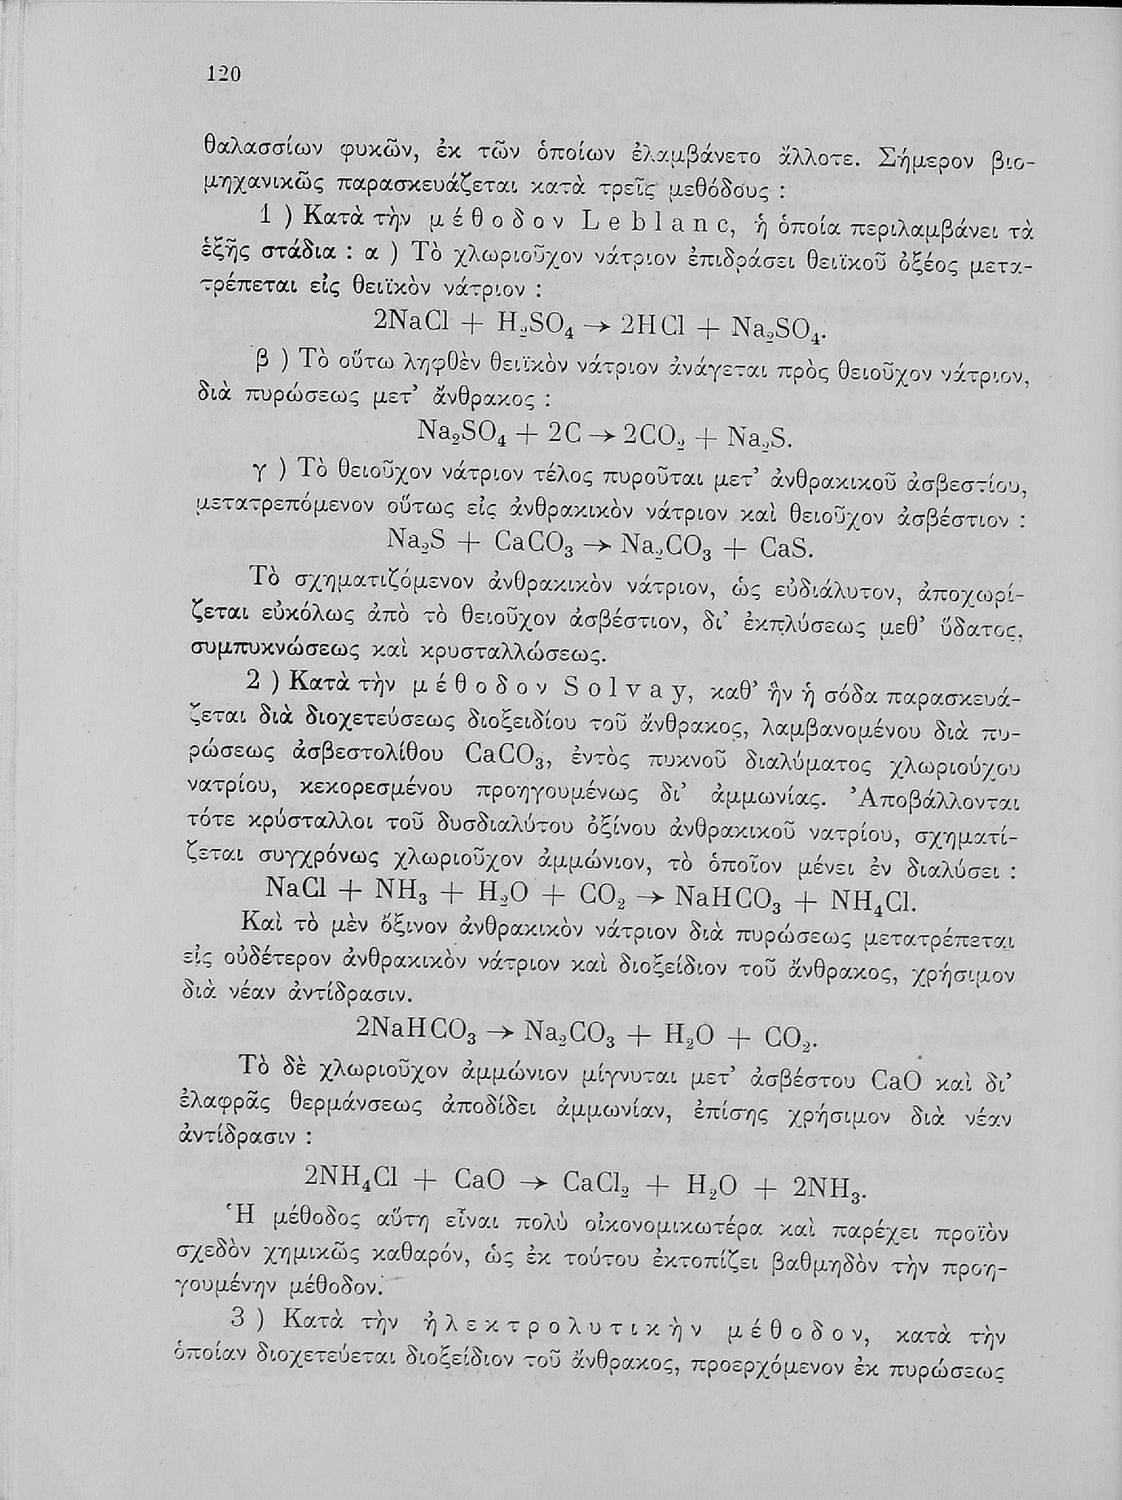 120
θαλασσίων φυκῶν, ἐκ τῶν ὁποίων ἐλαμβάνετο ἄλλοτε. Σήμερον βιο-
μηχανικῶς παρασκευάζεται κατὰ τρεῖς μεθόδους :
1 ) Κατὰ τὴν μ έ θ ο δ ο ν L e b l a n c, ἡ ὁποία περιλαμβάνει τὰ
ἑξῆς στάδια : α ) Τὸ χλωριοῦχον νάτριον ἐπιδράσει θειϊκοῦ ὀξέος μετα-
τρέπεται εἰς θειϊκὸν νάτριον :
2NaCl + H₂SO₄ → 2HCl + Na₂SO₄.
β ) Τὸ οὕτω ληφθὲν θειϊκὸν νάτριον ἀνάγεται πρὸς θειοῦχον νάτριον,
διὰ πυρώσεως μετ’ ἄνθρακος :
Na₂SO₄ + 2C → 2CO₂ + Na₂S.
γ ) Τὸ θειοῦχον νάτριον τέλος πυροῦται μετ’ ἀνθρακικοῦ ἀσβεστίου,
μετατρεπόμενον οὕτως εἰς ἀνθρακικὸν νάτριον καὶ θειοῦχον ἀσβέστιον :
Na₂S + CaCO₃ → Na₂CO₃ + CaS.
Τὸ σχηματιζόμενον ἀνθρακικὸν νάτριον, ὡς εὐδιάλυτον, ἀποχωρί-
ζεται εὐκόλως ἀπὸ τὸ θειοῦχον ἀσβέστιον, δι’ ἐκπλύσεως μεθ’ ὕδατος,
συμπυκνώσεως καὶ κρυσταλλώσεως.
2 ) Κατὰ τὴν μ έ θ ο δ ο ν S o l v a y, καθ’ ἣν ἡ σόδα παρασκευά-
ζεται διὰ διοχετεύσεως διοξειδίου τοῦ ἄνθρακος, λαμβανομένου διὰ πυ-
ρώσεως ἀσβεστολίθου CaCO₃, ἐντὸς πυκνοῦ διαλύματος χλωριούχου
νατρίου, κεκορεσμένου προηγουμένως δι’ ἀμμωνίας. Ἀποβάλλονται
τότε κρύσταλλοι τοῦ δυσδιαλύτου ὀξίνου ἀνθρακικοῦ νατρίου, σχηματί-
ζεται συγχρόνως χλωριοῦχον ἀμμώνιον, τὸ ὁποῖον μένει ἐν διαλύσει :
NaCl + NH₃ + H₂O + CO₂ → NaHCO₃ + NH₄Cl.
Καὶ τὸ μὲν ὄξινον ἀνθρακικὸν νάτριον διὰ πυρώσεως μετατρέπεται
εἰς οὐδέτερον ἀνθρακικὸν νάτριον καὶ διοξείδιον τοῦ ἄνθρακος, χρήσιμον
διὰ νέαν ἀντίδρασιν.
2NaHCO₃ → Na₂CO₃ + H₂O + CO₂.
Τὸ δὲ χλωριοῦχον ἀμμώνιον μίγνυται μετ’ ἀσβέστου CaO καὶ δι’
ἐλαφρᾶς θερμάνσεως ἀποδίδει ἀμμωνίαν, ἐπίσης χρήσιμον διὰ νέαν
ἀντίδρασιν :
2NH₄Cl + CaO → CaCl₂ + H₂O + 2NH₃.
Ἡ μέθοδος αὕτη εἶναι πολὺ οἰκονομικωτέρα καὶ παρέχει προϊὸν
σχεδὸν χημικῶς καθαρόν, ὡς ἐκ τούτου ἐκτοπίζει βαθμηδὸν τὴν προη-
γουμένην μέθοδον.
3 ) Κατὰ τὴν ἠ λ ε κ τ ρ ο λ υ τ ι κ ὴ ν μ έ θ ο δ ο ν, κατὰ τὴν
ὁποίαν διοχετεύεται διοξείδιον τοῦ ἄνθρακος, προερχόμενον ἐκ πυρώσεως